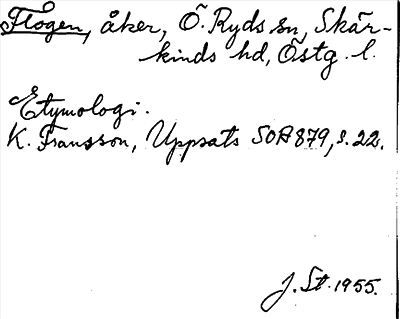 Flogen, åker, Ö. Ryds sn, Skär-
kinds hd, Östg. l.
Etymologi.
K. Fransson, Uppsats SOA 879, s. 22.
J. St. 1955.